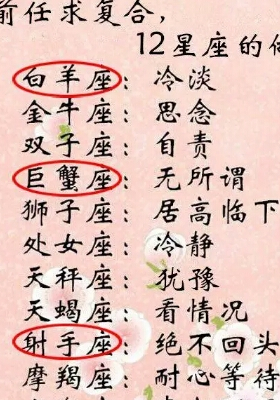 前任求复合，
12星座的
白羊座：冷淡
金牛座：思念
双子座：自责
巨蟹座：无所谓
狮子座：居高临下
处女座：冷静
天秤座：犹豫
天蝎座：看情况
射手座：绝不回头
摩羯座：耐心等待